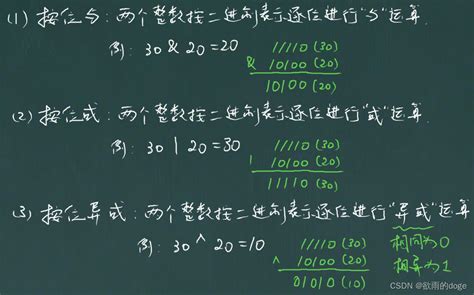 (1) 按位与：两个整数按二进制表示逐位进行"与"运算.
例：30 & 20 = 20
11110 (30)
& 10100 (20)
10100 (20)
(2) 按位或：两个整数按二进制表示逐位进行"或"运算.
例：30 | 20 = 30
11110 (30)
| 10100 (20)
11110 (30)
(3) 按位异或：两个整数按二进制表示逐位进行"异或"运算
例：30 ^ 20 = 10
11110 (30)
^ 10100 (20)
01010 (10)
相同为0
相异为1
CSDN @欲雨的doge